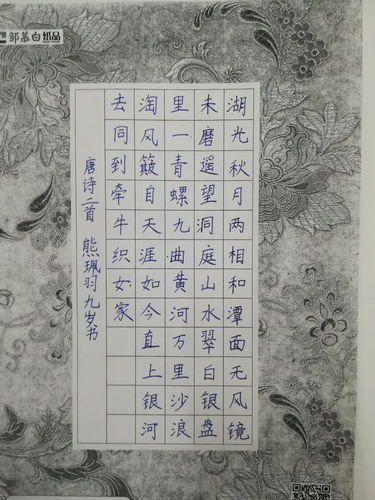 邹慕白纸品
湖光秋月两相和潭面无风镜
未磨遥望洞庭山水翠白银盘
里一青螺九曲黄河万里沙浪
淘风簸自天涯如今直上银河
去同到牵牛织女家
唐诗二首 熊珮羽九岁书